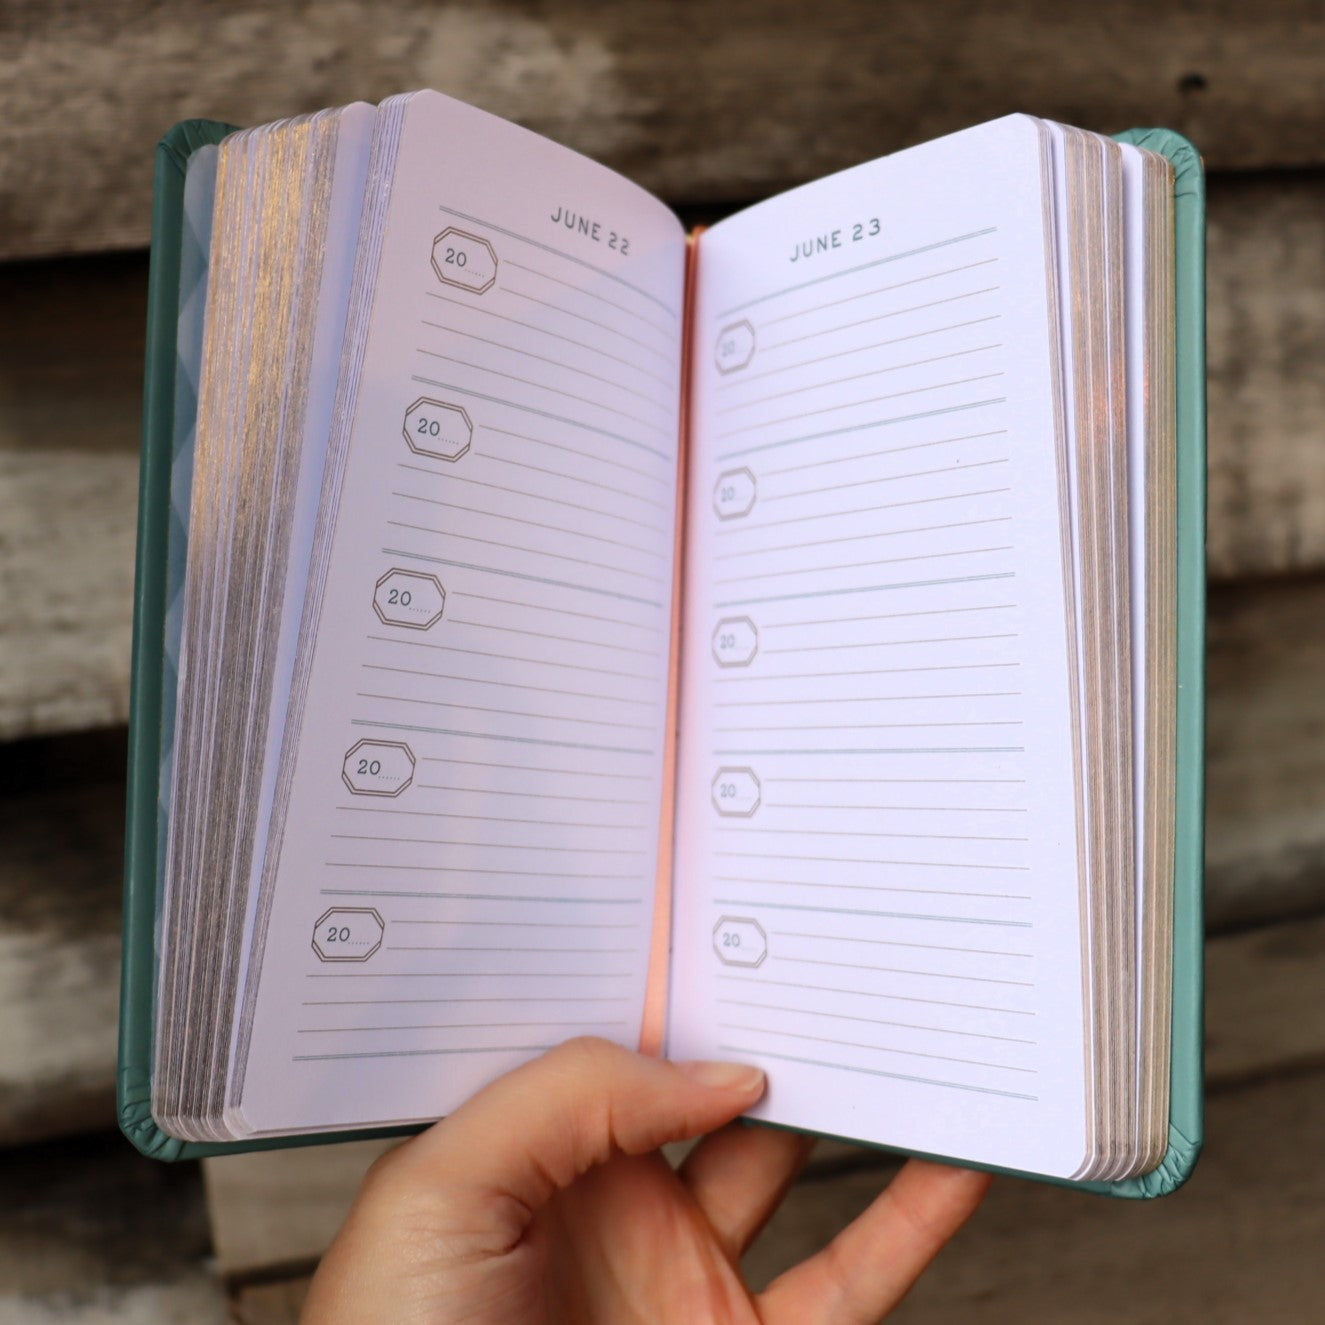 JUNE 22
20......
20......
20......
20......
20......
JUNE 23
20
20
20
20
20